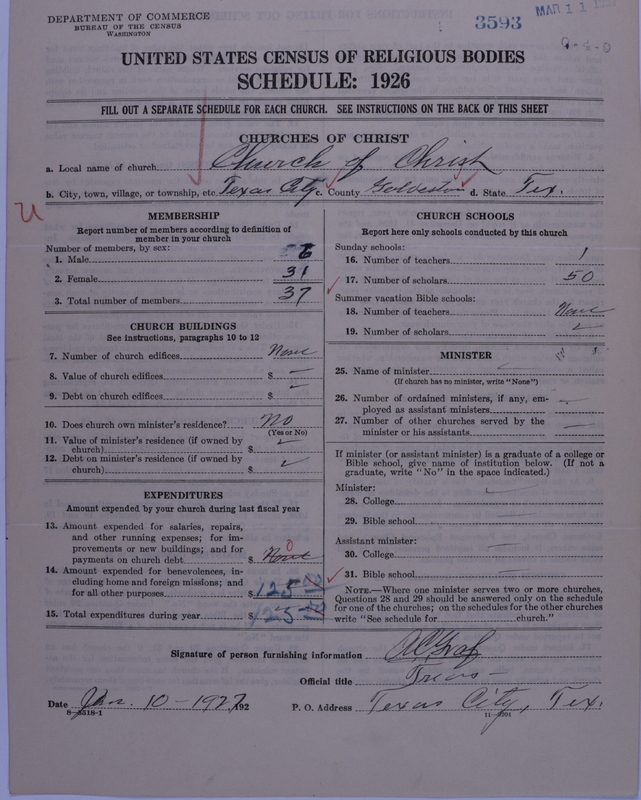 DEPARTMENT OF COMMERCE
BUREAU OF THE CENSUS
WASHINGTON
3593
MAR 11
9-4-0
UNITED STATES CENSUS OF RELIGIOUS BODIES
SCHEDULE: 1926
FILL OUT A SEPARATE SCHEDULE FOR EACH CHURCH. SEE INSTRUCTIONS ON THE BACK OF THIS SHEET
CHURCHES OF CHRIST
a. Local name of church Church of Christ
b. City, town, village, or township, etc. Texas City c. County Galveston d. State Tex.
U
MEMBERSHIP
Report number of members according to definition of
member in your church
Number of members, by sex:
1. Male 6
2. Female 31
3. Total number of members 37
CHURCH BUILDINGS
See instructions, paragraphs 10 to 12
7. Number of church edifices None
8. Value of church edifices $ —
9. Debt on church edifices $
10. Does church own minister's residence? No
(Yes or No)
11. Value of minister's residence (if owned by
church) $
12. Debt on minister's residence (if owned by
church) $
EXPENDITURES
Amount expended by your church during last fiscal year
13. Amount expended for salaries, repairs,
and other running expenses; for im-
provements or new buildings; and for
payments on church debt $ None 0
14. Amount expended for benevolences, in-
cluding home and foreign missions; and
for all other purposes $ 125.00
15. Total expenditures during year $ 125.00
CHURCH SCHOOLS
Report here only schools conducted by this church
Sunday schools:
16. Number of teachers 1
17. Number of scholars 50
Summer vacation Bible schools:
18. Number of teachers None
19. Number of scholars
MINISTER
25. Name of minister
(If church has no minister, write "None")
26. Number of ordained ministers, if any, em-
ployed as assistant ministers
27. Number of other churches served by the
minister or his assistants
If minister (or assistant minister) is a graduate of a college or
Bible school, give name of institution below. (If not a
graduate, write "No" in the space indicated.)
Minister:
28. College
29. Bible school
Assistant minister:
30. College
31. Bible school
NOTE.—Where one minister serves two or more churches,
Questions 28 and 29 should be answered only on the schedule
for one of the churches; on the schedules for the other churches
write "See schedule for church."
Signature of person furnishing information
Official title Treas—
Date Jan. 10-1927, 192 P. O. Address Texas City, Tex.
8—5518-1